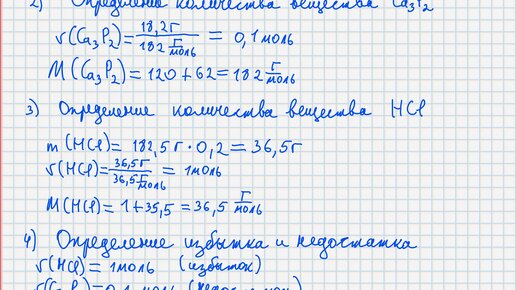 2) Определение количества вещества Ca₃P₂
ν(Ca₃P₂) = 18,2г / 182 г/моль = 0,1 моль
M(Ca₃P₂) = 120 + 62 = 182 г/моль
3) Определение количества вещества HCl
m(HCl) = 182,5г · 0,2 = 36,5г
ν(HCl) = 36,5г / 36,5 г/моль = 1моль
M(HCl) = 1 + 35,5 = 36,5 г/моль
4) Определение избытка и недостатка
ν(HCl) = 1моль (избыток)
ν(Ca₃P₂) = 0,1 моль (недостаток)